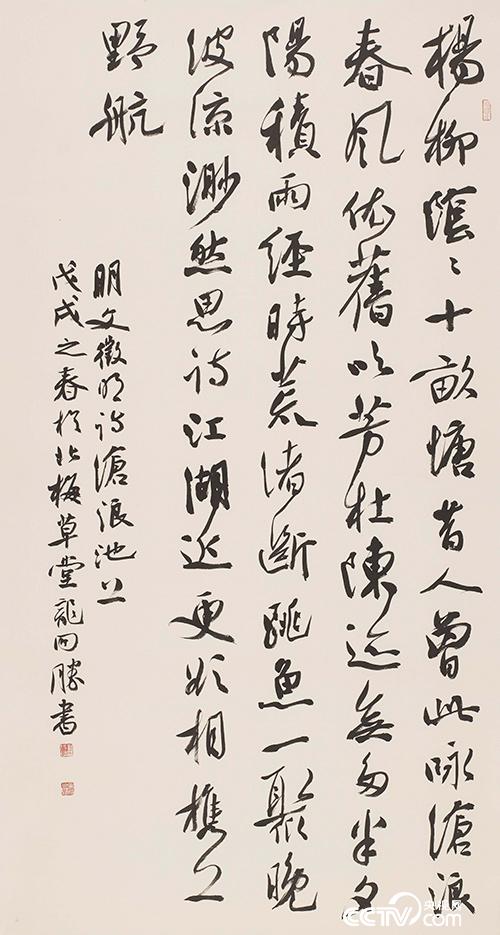 楊柳隂〻十畝塘昔人曾此咏滄浪
春風依舊吹芳杜陳迹無多半夕
陽積雨經時荒渚斷跳魚一聚晚
波涼渺然思詩江湖近更欲相携上
野航
明文徵明詩滄浪池上
戊戌之春於北梅草堂龍開勝書
央视网
CCTV.com